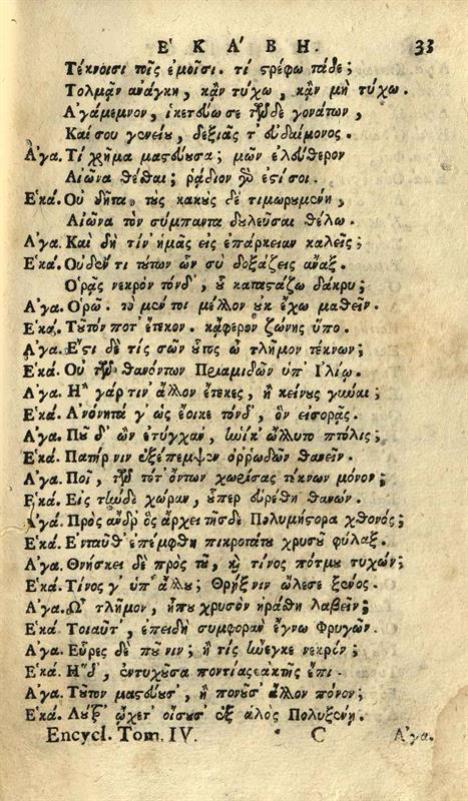 ΕΚΑ΄ΒΗ. 33
Τέκνοισι τοῖς ἐμοῖσι. τί στρέφω τάδε;
Τολμᾶν ἀνάγκη, κἂν τύχω, κἂν μὴ τύχω.
Α᾽γάμεμνον, ἱκετεύω σε τῶνδε γονάτων,
Καί σου γενείου, δεξιᾶς τ᾽ εὐδαίμονος.
Α᾽γα. Τί χρῆμα μαστεύουσα; μῶν ἐλεύθερον
Αἰῶνα θέσθαι; ῥᾴδιον γάρ ἐστί σοι.
Ε῾κά. Οὐ δῆτα. τοὺς κακοὺς δὲ τιμωρουμένη,
Αἰῶνα τὸν σύμπαντα δουλεῦσαι θέλω.
Α᾽γα. Καὶ δὴ τίν᾽ ἡμᾶς εἰς ἐπάρκεσιν καλεῖς;
Ε῾κά. Οὐδέν τι τούτων ὧν σὺ δοξάζεις ἄναξ.
Ο῾ρᾷς νεκρὸν τόνδ᾽, οὗ καταστάζω δάκρυ;
Α᾽γα. Ο῾ρῶ. τὸ μέν τοι μέλλον οὐκ ἔχω μαθεῖν.
Ε῾κά. Τοῦτόν ποτ᾽ ἔτεκον. κἄφερον ζώνης ὕπο.
Α᾽γα. Ε῎στι δὲ τίς σῶν οὗτος ὦ τλῆμον τέκνων;
Ε῾κά. Οὐ τῶν θανόντων Πριαμιδῶν ὑπ᾽ Ι᾽λίῳ.
Α᾽γα. Η῏ γάρ τιν᾽ ἄλλον ἔτεκες, ἢ κείνους γύναι;
Ε῾κά. Α᾽νόνητά γ᾽ ὡς ἔοικε τόνδ᾽, ὃν εἰσορᾷς.
Α᾽γα. Ποῦ δ᾽ ὢν ἐτύγχαν᾽, ἡνίκ᾽ ὤλλυτο πτόλις;
Ε῾κά. Πατήρ νιν ἐξέπεμψεν ὀρρωδῶν θανεῖν.
Α᾽γα. Ποῖ, τῶν τότ᾽ ὄντων χωρίσας τέκνων μόνον;
Ε῾κά. Εἰς τήνδε χώραν, οὗπερ εὑρέθη θανών.
Α᾽γά. Πρὸς ἄνδρ᾽ ὃς ἄρχει τῆσδε Πολυμήστορα χθονός;
Ε῾κά. Ε᾽νταῦθ᾽ ἐπέμφθη πικροτάτου χρυσοῦ φύλαξ.
Α᾽γα. Θνήσκει δὲ πρὸς τοῦ, καὶ τίνος πότμου τυχών;
Ε῾κά. Τίνος γ᾽ ὑπ᾽ ἄλλου; Θρῄξ νιν ὤλεσε ξένος.
Α᾽γα. Ω῏ τλῆμον, ἦπου χρυσὸν ἠράσθη λαβεῖν;
Ε῾κά. Τοιαῦτ᾽, ἐπειδὴ συμφορὰν ἔγνω Φρυγῶν.
Α᾽γα. Εὗρες δὲ ποῦ νιν; ἢ τίς ἤνεγκε νεκρόν;
Ε῾κά. Η῞δ᾽, ἐντυχοῦσα ποντίας ἀκτῆς ἔπι.
Α᾽γα. Τοῦτον μαστεύουσ᾽, ἢ πονοῦσ᾽ ἄλλον πόνον;
Ε῾κά. Λούτρ᾽ ᾤχετ᾽ οἴσουσ᾽ ἐξ ἁλὸς Πολυξένῃ.
Encycl. Tom. IV. C Α᾽γα.